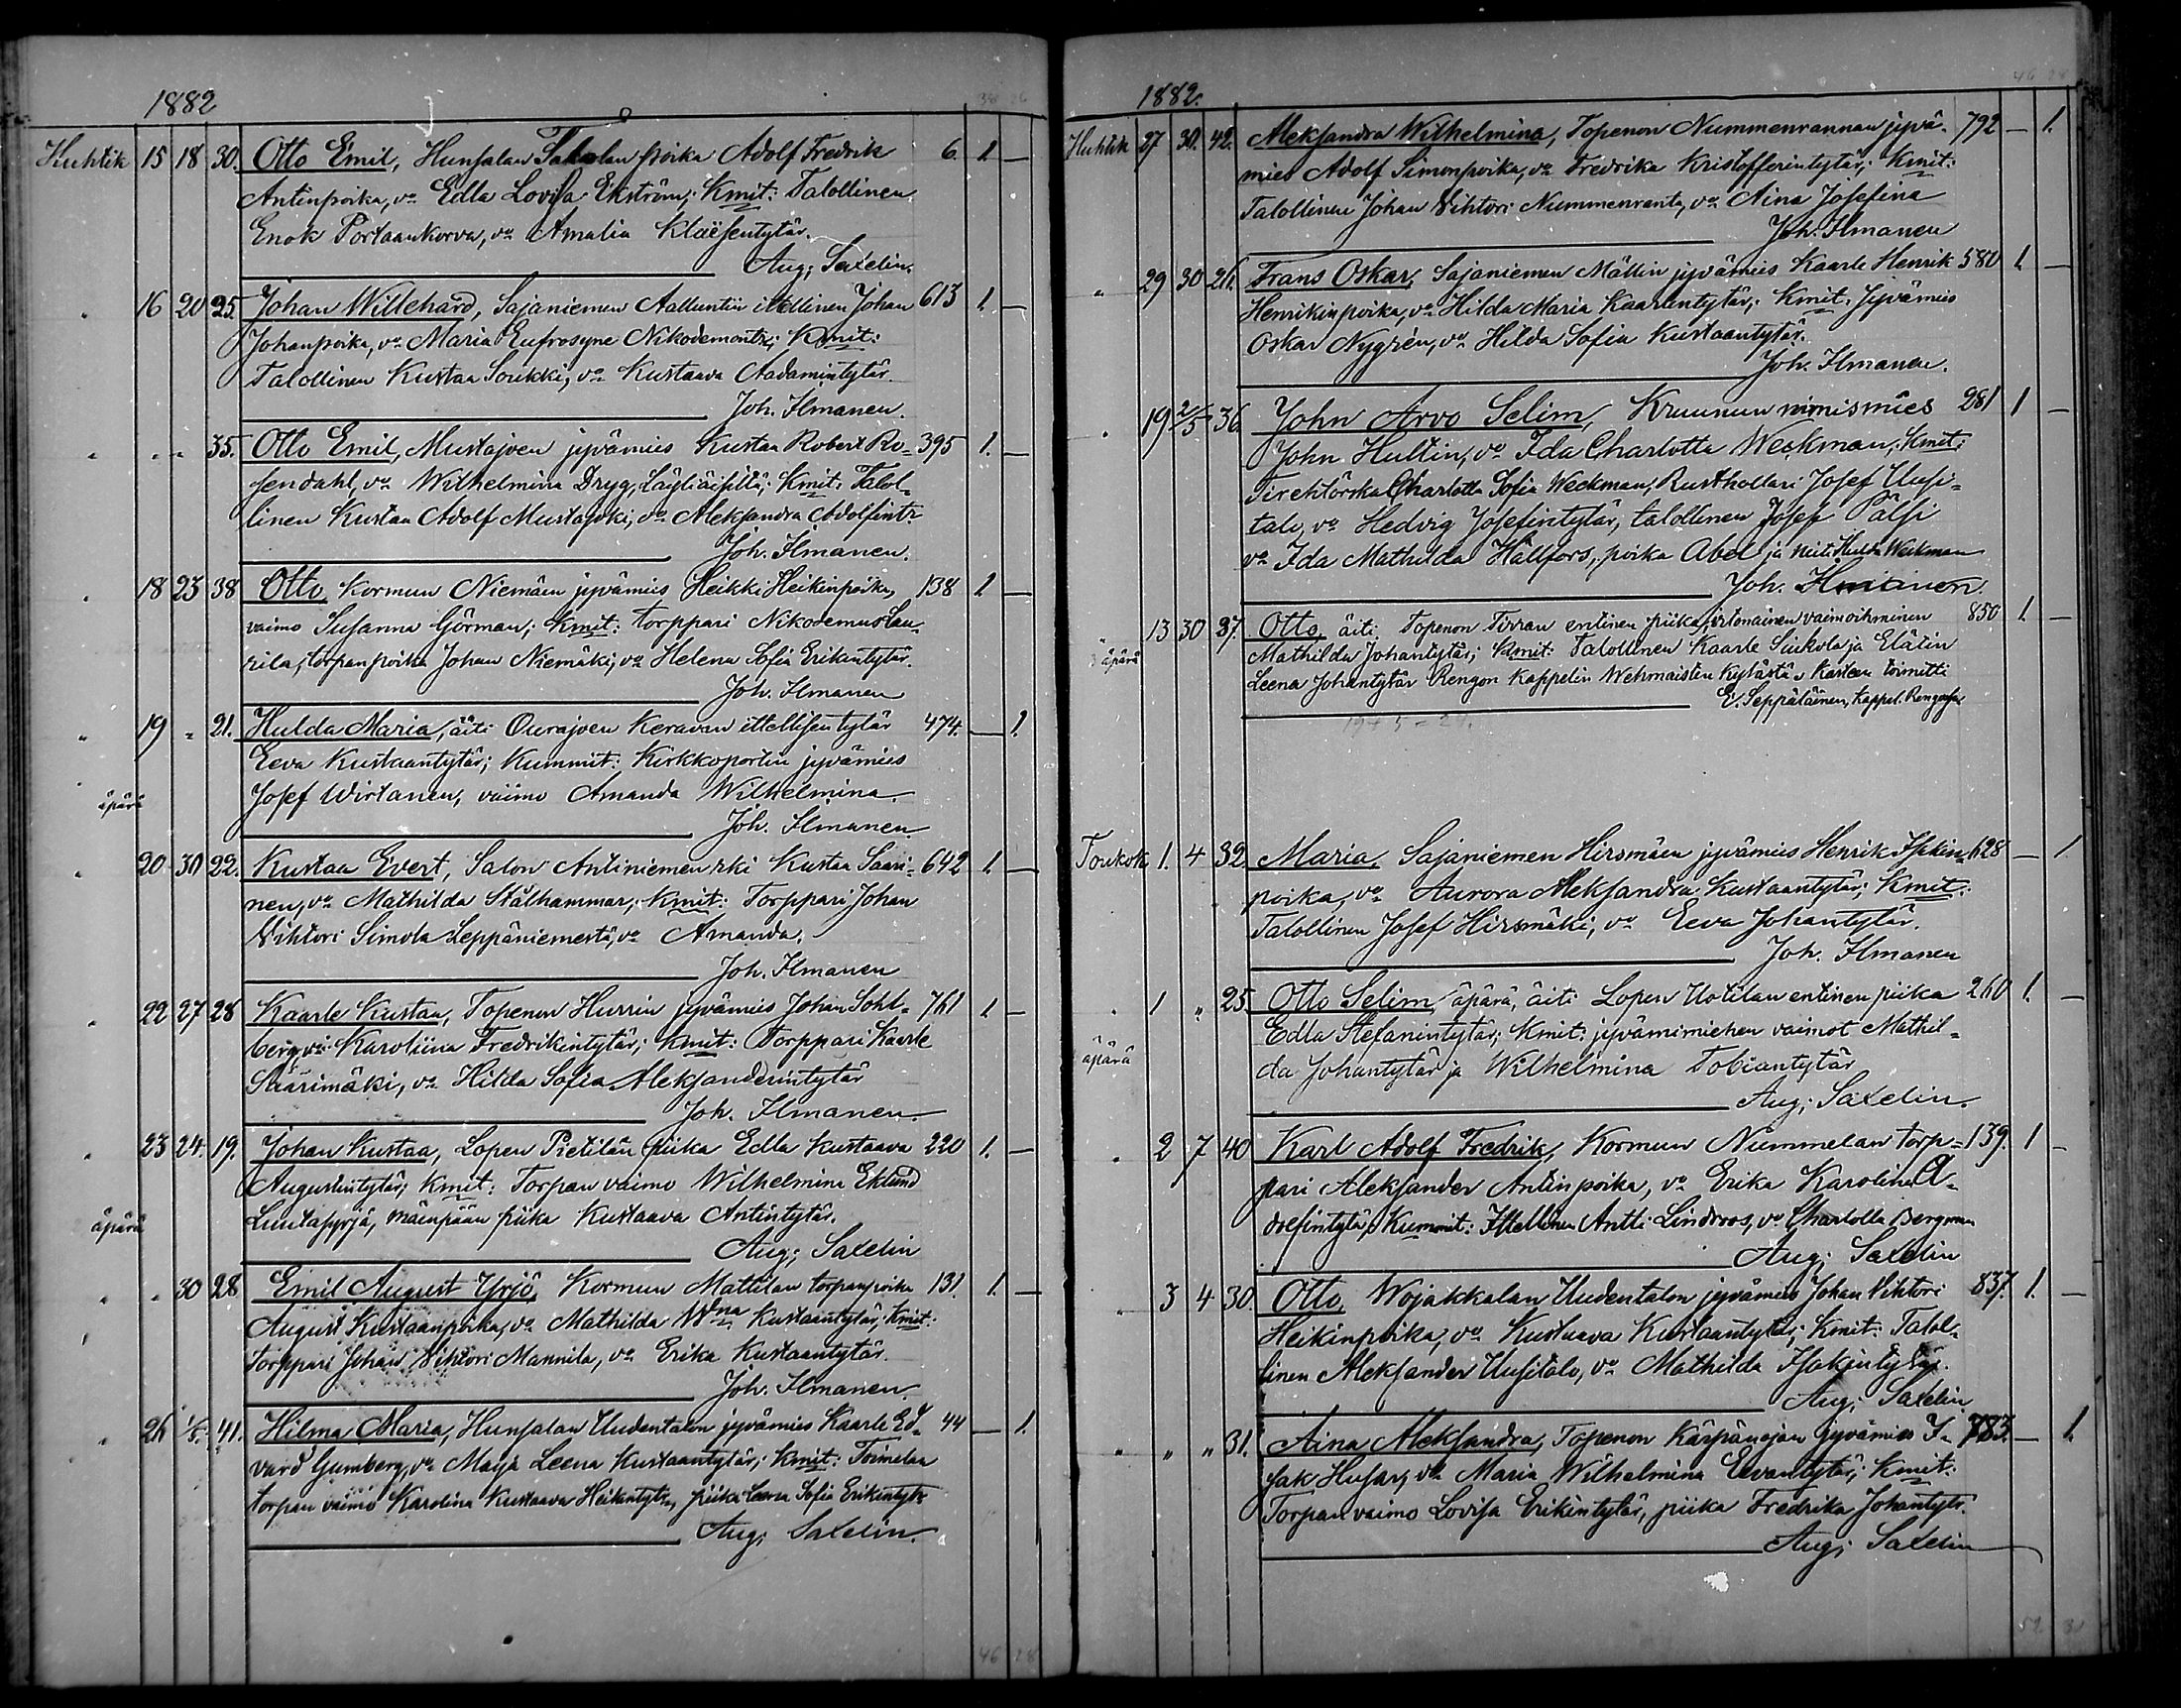 1882
Huhtik 15 18 30. Otto Emil, Hunsalan Takalan poika Adolf Fredrik 6. 1. —
Antinpoika, vo Edla Lovisa Ekström; Kmit: Talollinen
Enok Portaankorva, vo Amalia Klaësentytär.
Aug; Saxelin.
" 16 20 25. Johan Willehard, Sajaniemen itellinen Johan 613 1. —
Johanpoika, vo Maria Eufrosyne Nikodemontr; Kmit:
Talollinen Kustaa Soukki, vo Kustaava Aadamintytär.
Joh. Ilmanen.
" " " 35. Otto Emil, Mustajoen jyvämies Kustaa Robert Ro- 395 1. —
sendahl, vo Wilhelmina Dryg, Läyliäisiltä; Kmit: Talol-
linen Kustaa Adolf Mustajoki, vo Aleksandra Adolfintr
Joh. Ilmanen.
" 18 23 38 Otto, Kormun Niemäen jyvämies Heikki Heikinpoika, 138 1 —
vaimo Susanna Görman; Kmit: torppari Nikodemus Lau-
rila, torpanpoika Johan Niemäki, vo Helena Sofia Erikintytär.
Joh. Ilmanen
" 19 " 21. Hulda Maria, äiti Ourajoen Keravan ittellisen tytär 474. — 1.
Eeva Kustaantytär; Kummit: Kirkkoportin jyvämies
äpärä Josef Wirtanen, vaimo Amanda Wilhelmina.
Joh. Ilmanen.
" 20 30 22. Kustaa Evert, Salon Antiniemen rki Kustaa Saari- 642 1. —
nen, vo Mathilda Stålhammar; Kmit: Torppari Johan
Vihtori Simola Leppäniemestä, vo Amanda.
Joh. Ilmanen
" 22 27 28 Kaarle Kustaa, Topenon Hurrin jyvämies Johan Sohl- 761 1 —
berg, vo Karoliina Fredrikintytär; Kmit: Torppari Kaarle
Saarimäki, vo Hilda Sofia Aleksanderintytär
Joh. Ilmanen.
" 23 24. 19. Johan Kustaa, Lopen Pietilän piika Edla Kustaava 220 1. —
Augustintytär; Kmit: Torpan vaimo Wilhelmina Eklund
äpärä mäenpään piika Kustaava Antintytär.
Aug; Saxelin
" " 30 28 Emil August Yrjö, Kormun Mattilan torpanpoika 131. 1. —
August Kustaanpoika, vo Mathilda Wna Kustaantytär; Kmit:
Torppari Johan Vihtori Mannila, vo Erika Kustaantytär.
Joh. Ilmanen.
" 26 1/5. 41. Hilma Maria, Hunsalan Uudentalon jyvämies Kaarle Ed- 44 — 1.
vard Gumberg, vo Maija Leena Kustaantytär; Kmit: Toimelan
torpan vaimo Karolina Kustaava Heikintytr, piika Leena Sofia Erikintytr
Aug; Saxelin.
1882.
Huhtik 27 30. 42. Aleksandra Wilhelmina, Topenon Nummenrannan jyvä- 792 — 1.
mies Adolf Simonpoika, vo Fredrika Kristofferintytär; Kmit:
Talollinen Johan Vihtori Nummenranta, vo Aina Josefina
Joh. Ilmanen
" 29 30 26. Frans Oskar, Sajaniemen Mällin jyvämies Kaarle Henrik 580 1. —
Henrikinpoika, vo Hilda Maria Kaarlentytär; Kmit: Jyvämies
Oskar Nygrén, vo Hilda Sofia Kustaantytär.
Joh. Ilmanen.
" 19 2/5 36 John Arvo Selim, Kruunun nimismies 281 1 —
John Hultin, vo Ida Charlotta Weckman; Kmit:
Tirehtörska Charlotta Sofia Weckman, Rusthollari Josef Uusi-
talo, vo Hedvig Josefintytär, talollinen Josef Pälsi
vo Ida Mathilda Hällfors, poika Abel ja neiti Hulda Weckman
Joh. Ilmanen.
" 13 30 37. Otto, äiti Topenon Tirran entinen piika, irtonainen vaimoihminen 850 1. —
äpärä Mathilda Johantytär; Kmit: Talollinen Kaarle Siukola ja Elätin
Leena Johantytär Rengon Kappelin Wehmaisten kylästä. Kasteen toimitti
E. Seppäläinen, Kappel. Rengossa
19 + 5 = 24.
Toukok 1. 4 32 Maria, Sajaniemen Hirsmäen jyvämies Henrik Isakin- 628 — 1
poika, vo Aurora Aleksandra Kustaantytär; Kmit:
Talollinen Josef Hirsmäki, vo Eeva Johantytär.
Joh. Ilmanen
" 1 " 25 Otto Selim, äpärä, äiti Lopen Uotilan entinen piika 260 1. —
Edla Stefanintytär; Kmit: jyvämiehen vaimot Mathil-
äpärä da Johantytär ja Wilhelmina Tobiantytär
Aug; Saxelin.
" 2 7 40 Karl Adolf Fredrik, Kormun Nummelan torp- 139. 1 —
pari Aleksander Antinpoika, vo Erika Karolina A-
dolfintytär; Kummit: Itellinen Antti Lindroos, vo Charlotta Bergman
Aug; Saxelin
" 3 4 30 Otto, Wojakkalan Uudentalon jyvämies Johan Vihtori 837. 1. —
Heikinpoika, vo Kustaava Kustaantytär; Kmit: Talol-
linen Aleksander Uusitalo, vo Mathilda Isakintytär.
Aug; Saxelin
" " " 31. Aina Aleksandra, Topenon Kärpänojan jyvämies I- 783. — 1.
sak Husar, vo Maria Wilhelmina Eevantytär; Kmit:
Torpan vaimo Lovisa Erikintytär, piika Fredrika Johantytr.
Aug; Saxelin